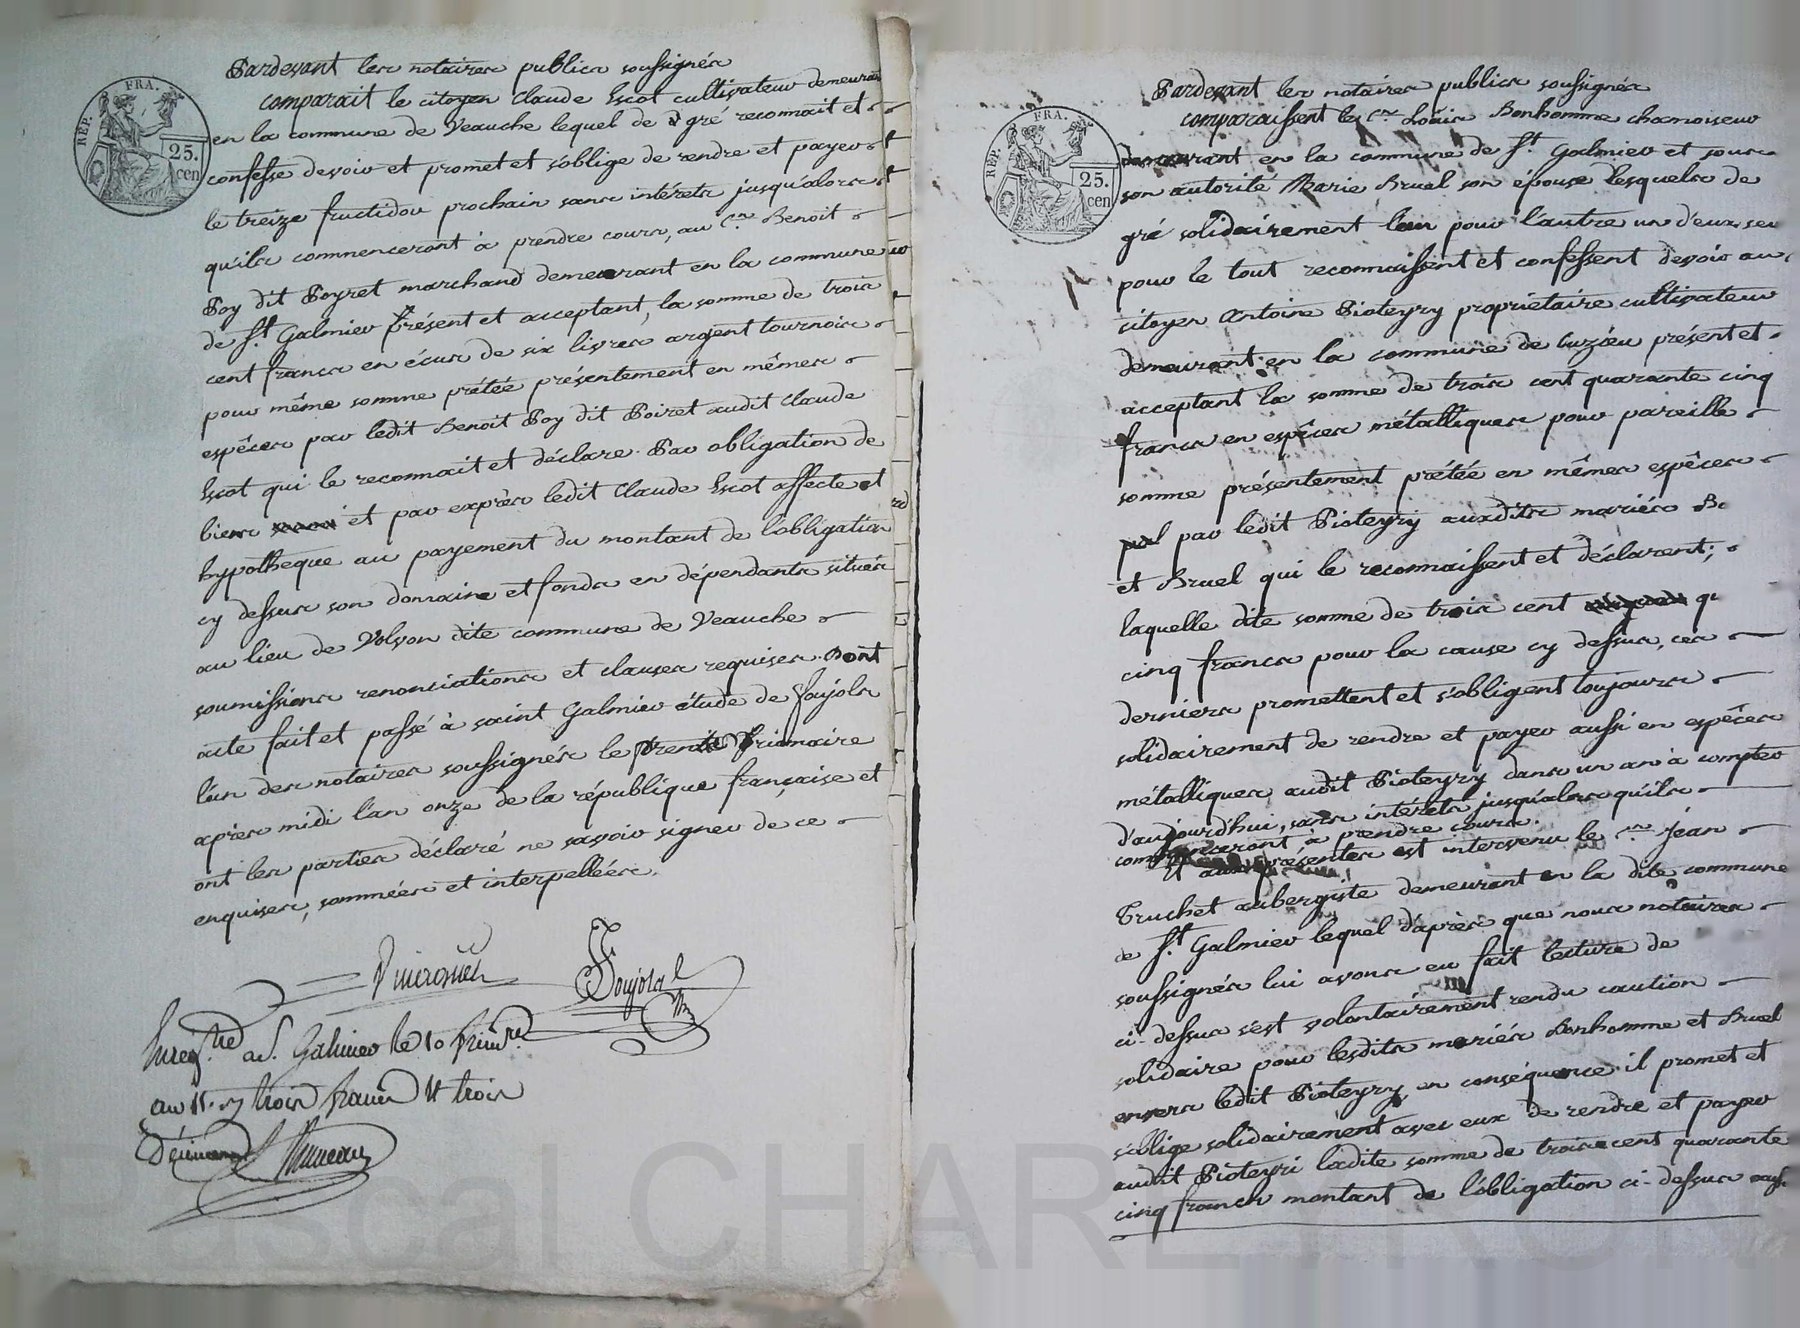 REP. FRA.
25.
cen
Pardevant les notaires publics soussignés
comparait le citoyen Claude Escot cultivateur demeurant
en la commune de Veauche lequel de gré reconnait et
confesse devoir et promet et s'oblige de rendre et payer
le treize fructidor prochain sans intérets jusqu'alors
qu'ils commenceront à prendre cours, au C.en Benoit
Poy dit Poyret marchand demeurant en la commune
de S.t Galmier présent et acceptant, la somme de trois
cent francs en écus de six livres argent tournois
pour même somme prétée présentement en mêmes
espêces par ledit Benoit Poy dit Poiret audit Claude
Escot qui le reconnait et déclare. Par obligation de
biens et par exprès ledit Claude Escot affecte et
hypotheque au payement du montant de l'obligation
cy dessus son domaine et fonds en dépendants situés
au lieu de Volvon dite commune de Veauche
soumissions renonciations et clauses requises. Dont
acte fait et passé à saint Galmier étude de Soujols
l'un des notaires soussignés le frimaire
après midi l'an onze de la république française et
ont les parties déclaré ne savoir signer de ce
enquises, sommées et interpellées.
Soujols
Enreg.tré a S. Galmier le 10 frim.re
an 11. trois francs et trois
Décimes
REP. FRA.
25.
cen
Pardevant les notaires publics soussignés
comparaissent le c.en Louis Bonhomme chamoiseur
demeurant en la commune de S.t Galmier et sous
son autorité Marie Bruel son épouse lesquels de
gré solidairement l'un pour l'autre un d'eux seu
pour le tout reconnaissent et confessent devoir au
citoyen Antoine Pioteyry propriétaire cultivateur
demeurant en la commune de Cuzieu présent et
acceptant la somme de trois cent quarante cinq
francs en espêces métalliques pour pareille
somme présentement prétée en mêmes espêces
par ledit Pioteyry auxdits mariés Bo
et Bruel qui le reconnaissent et déclarent;
laquelle dite somme de trois cent qu
cinq francs pour la cause cy dessus, ces
derniers promettent et s'obligent toujours
solidairement de rendre et payer aussi en espêces
métalliques audit Pioteyry dans un an à compter
d'aujourd'hui, sans intérets jusqu'alors qu'ils
commenceront à prendre cours.
Et aux présentes est intervenu le c.en Jean
Truchet aubergiste demeurant en la dite commune
de S.t Galmier lequel d'après que nous notaires
soussignés lui avons eu fait lecture de
ci-dessus s'est volontairement rendu caution
solidaire pour lesdits mariés Bonhomme et Bruel
envers ledit Pioteyry, en conséquence il promet et
s'oblige solidairement avec eux de rendre et payer
audit Pioteyri ladite somme de trois cent quarante
cinq francs montant de l'obligation ci-dessus
Pascal CHAREYRON